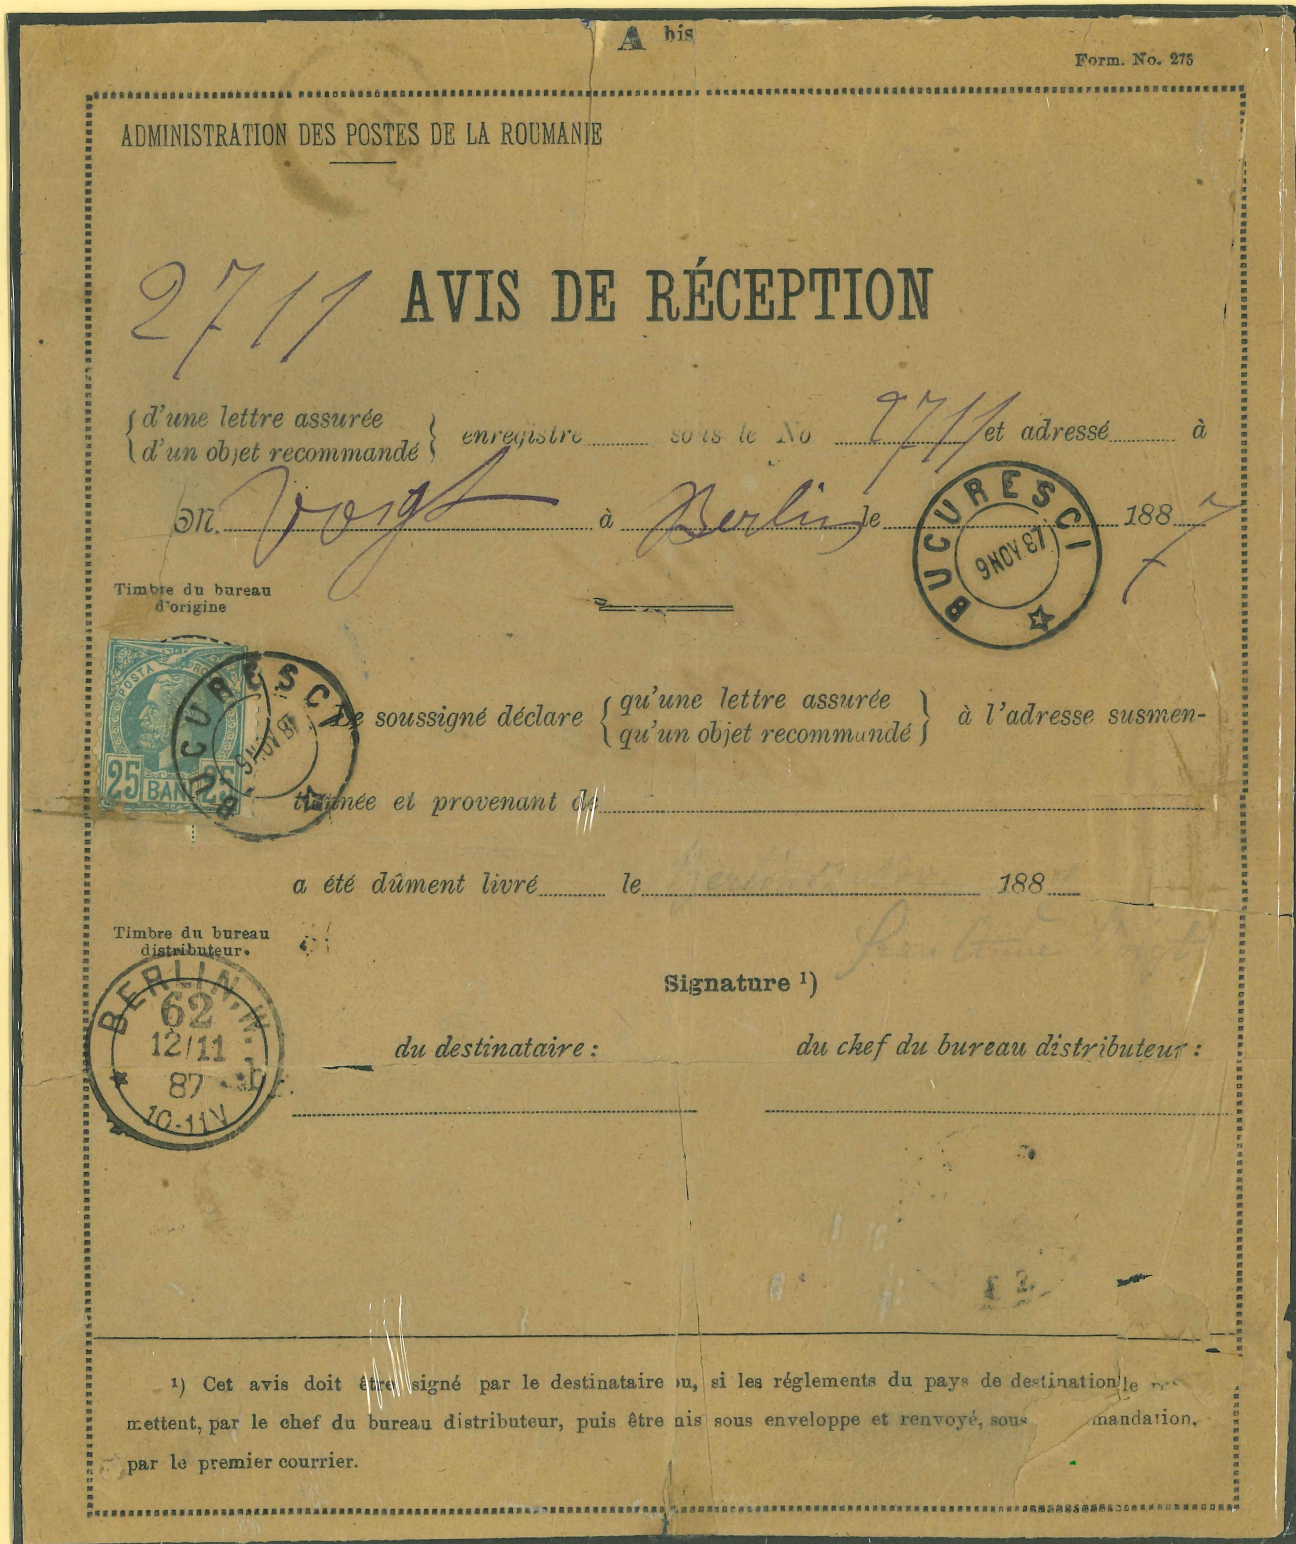 A bis
Form. No. 275
ADMINISTRATION DES POSTES DE LA ROUMANIE
2711 AVIS DE RÉCEPTION
{ d'une lettre assurée
{ d'un objet recommandé } enregistre sous le No 2711 et adressé à
M. Voigt à Berlin le 1887
BUCURESCI
9 NOV. 87
Timbre du bureau
d'origine
POSTA RO
25 BANI 25
BUCURESCI
9 NOV. 87
Le soussigné déclare { qu'une lettre assurée
{ qu'un objet recommandé } à l'adresse susmen-
tionnée et provenant de
a été dûment livré le 188
Timbre du bureau
distributeur.
BERLIN, W.
62
12/11
87
10-11V
Voigt
Signature ¹)
du destinataire : du chef du bureau distributeur :
¹) Cet avis doit être signé par le destinataire ou, si les réglements du pays de destination le
mettent, par le chef du bureau distributeur, puis être mis sous enveloppe et renvoyé, sous mandation,
par le premier courrier.